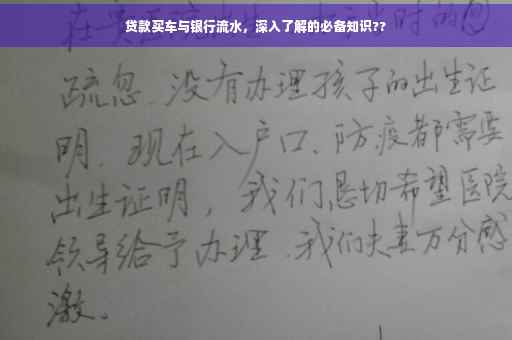 贷款买车与银行流水，深入了解的必备知识??
疏忽、没有办理孩子的出生证
明、现在入户口、防疫都需要
出生证明，我们恳切希望医院
领导给予办理、我们夫妻万分感
激。